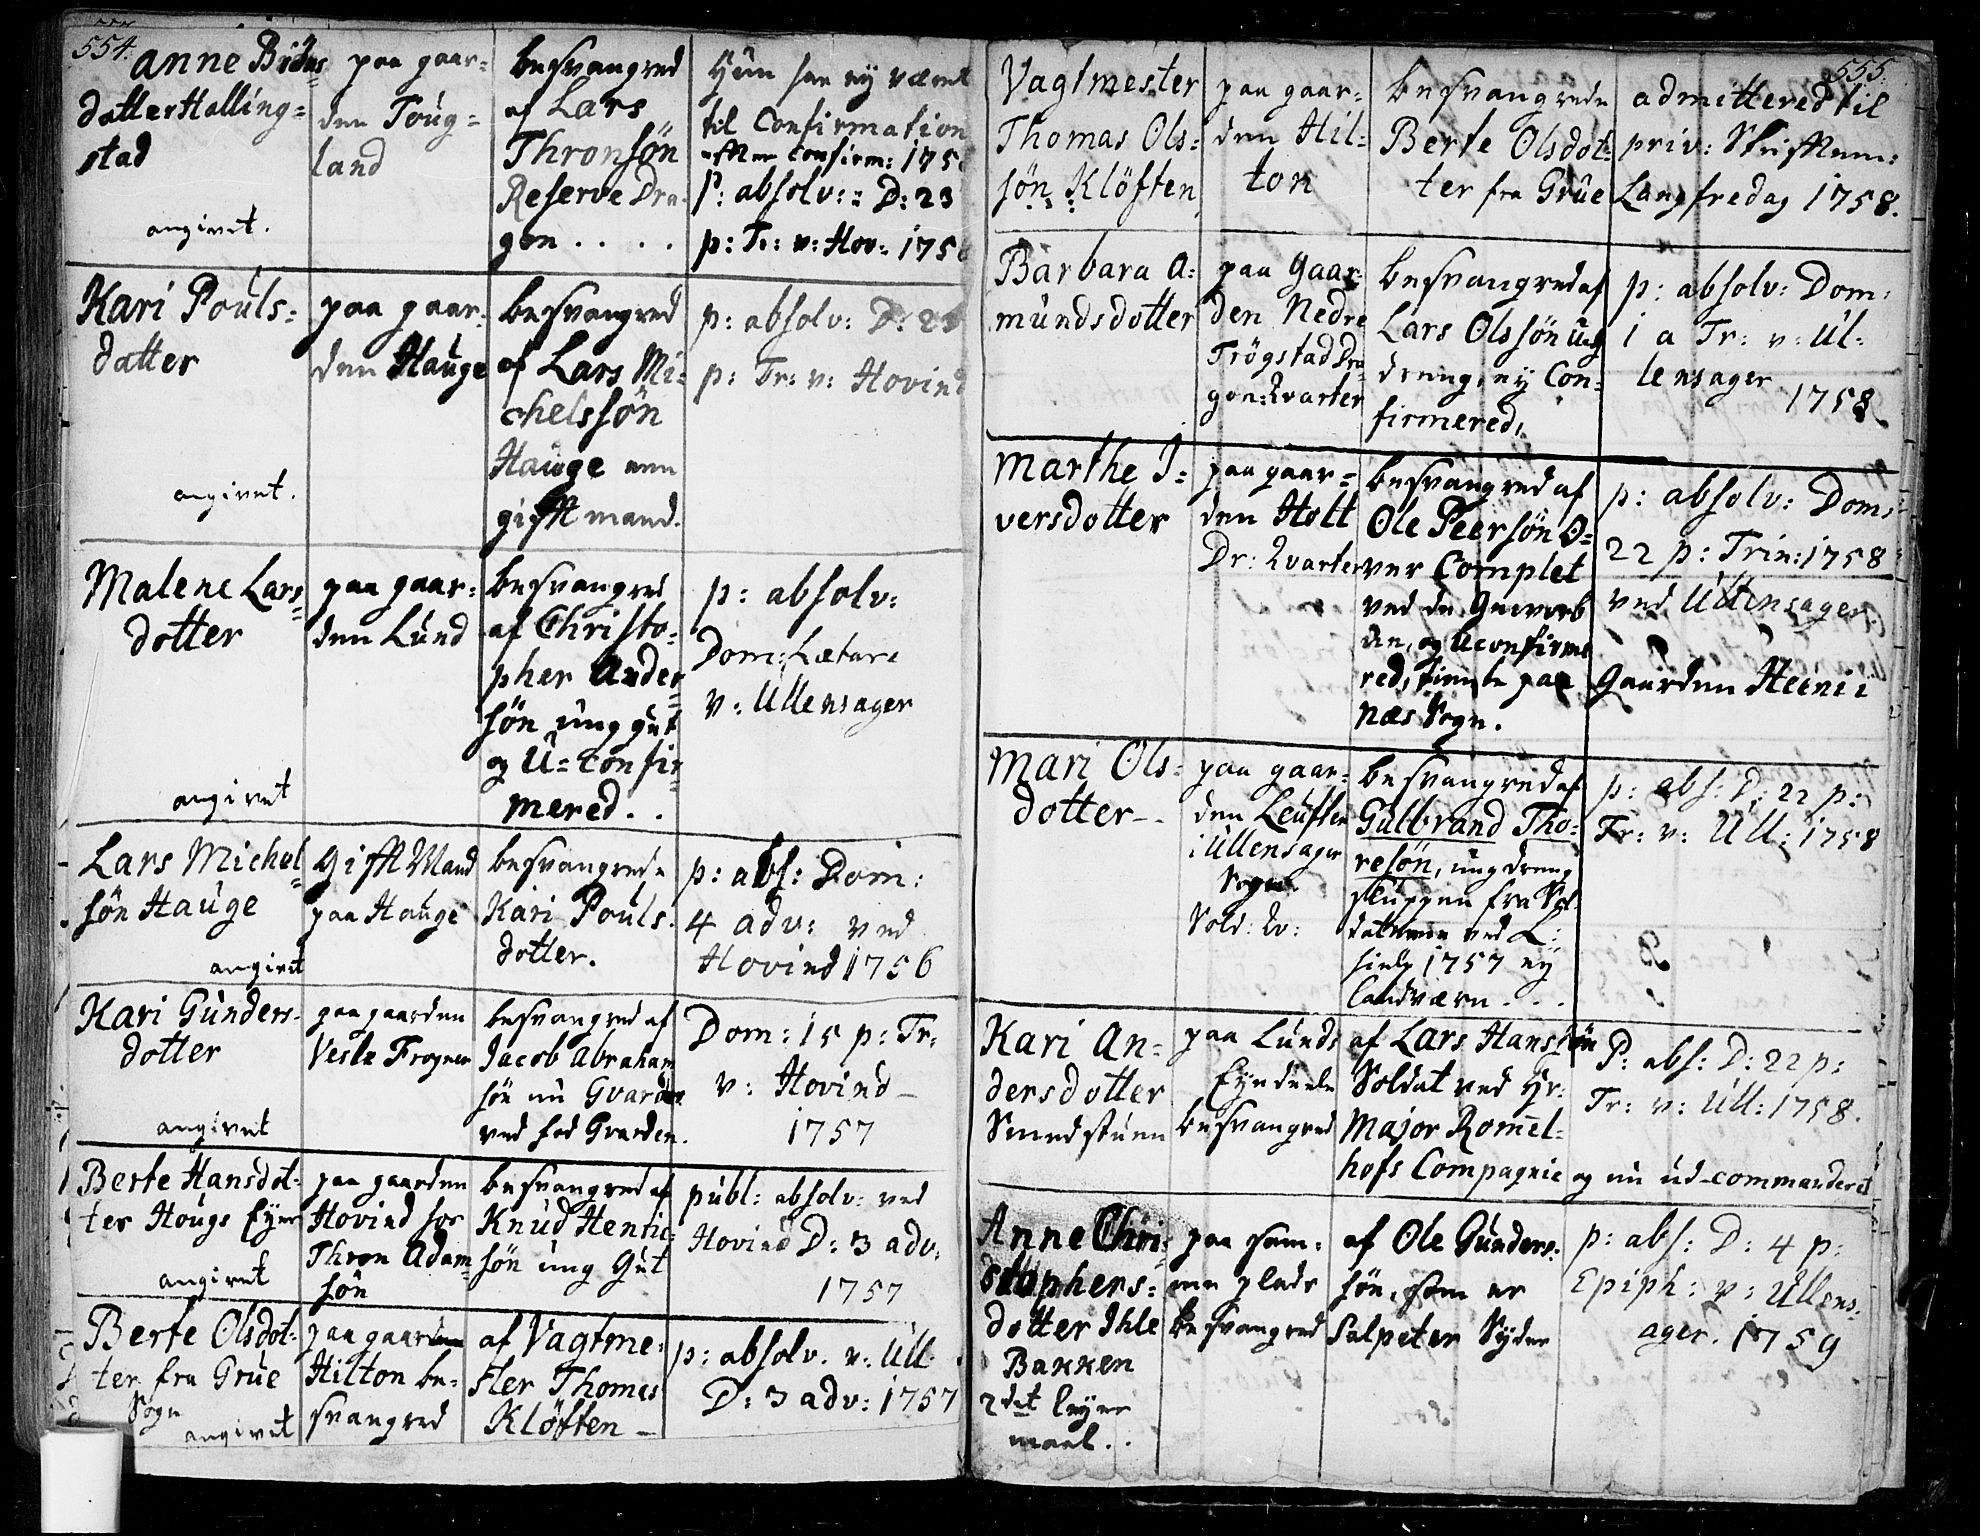 554.
Anne Brÿns
datter Halling=
stad
angivet.
paa gaar=
den Toug=
land
besvangred
af Lars
Thronsön
Reserve Dra-
gon . . . .
Hun har ey været
til Confirmation
confirm: 175
P: absolv: D: 23
p: Tr: v: Hov: 175
Kari Pouls=
datter
angivet.
paa gaar-
den Hauge
besvangred
af Lars Mi=
chelssön
Hauge een
gifft mand.
p: absolv: D: 23
p: Tr: v: Hovind
Malene Lars=
dotter
angivet
paa gaar=
den Lund
besvangred
af Christo=
pher Ander=
sön ung gut
og U=confir=
mered . .
p: absolv:
Dom: Lætare
v: Ullensager
Lars Michel=
sön Hauge
angivet
Gifft Mand
paa Hauge
besvangrede
Kari Pouls-
dotter.
p: abs: Dom:
4 adv: ved
Hovind 1756
Kari Gunders-
dotter
angivet
paa gaarden
Vesle Frogner
besvangred af
Jacob Abraham
sön nu Gvarder
ved fod Gvarden.
Dom: 15 p: Tr:
v: Hovind
1757
Berte Hansdot-
ter Hougs Eyer
angivet
paa gaarden
Hovind hos
Thron Adam=
sön
besvangred af
Knud Henric=
sön ung Gut
publ: absolv: ved
Hovind D: 3 adv:
1757
Berte Olsdot=
ter fra Grue
Sogn
angivet
paa gaarden
Hilton be-
svangred
af Vagtme-
ster Thomas
Klöften –
p: absolv. v: Ull.
D: 3 adv: 1757
555.
Vagtmester
Thomas Ols=
sön Klöften
paa gaar=
den Hil=
ton
besvangrede
Berte Olsdot=
ter fra Grue
admittered til
priv: Skrifftem:
Langfredag 1758.
Barbara A=
mundsdotter
paa Gaar=
den Nedre
Trögstad Dra-
gon: Qvarter
besvangred af
Lars Olssön ung
dreng, ey Con=
firmered,
p: absolv: Dom:
1 a Tr: v: Ul=
lensager
1758
Marthe I=
versdotter
paa gaar=
den Holt
Dr: Qvarter
besvangred af
Ole Peersön O=
ver Complet
ved de Gevorb
den, og Uconfirme
red, tiente paa Gaarden Heini i
Næs Sogn.
p: absolv: Dom:
22 p: Trin: 1758
ved Ullensager
Mari Ols=
dotter - .
paa gaar=
den Leuften
i Ullensager
Sogn
Sold: Qv:
besvangred af
Gulbrand Tho=
resön, ung dreng
sluppen fra Sol
daterne ved L:
hielp 1757 ey
Landværn . . .
p: abs: D: 22 p:
Tr: v: Ull: 1758
Kari An=
dersdotter
Smedstuen
paa Lunds
Eyendeele
besvangred
af Lars Hanssön
Soldat ved Hr:
Major Romel=
hofs Compagnie og nu ud-commanderet
P: abs: D: 22 p:
Tr: v: Ull: 1758.
Anne Chri=
stophers=
dotter Ihle
Bakken
2det leyer
maal . .
paa sam=
me plads
besvangred
af Ole Gunders-
sön, som er
Salpeter Syder
p: abs: D: 4 p:
Epiph: v: Ullens-
ager. 1759